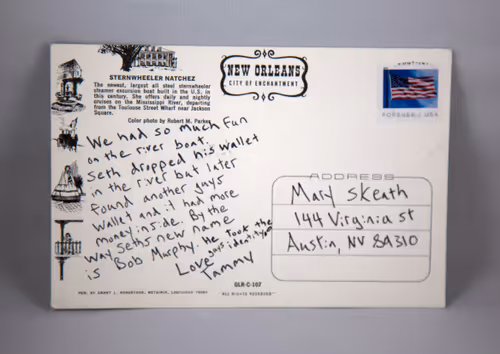 STERNWHEELER NATCHEZ
The newest, largest all steel sternwheeler
steamer excursion boat built in the U.S. in
this century. She offers daily and nightly
cruises on the Mississippi River, departing
from the Toulouse Street Wharf near Jackson
Square.
Color photo by Robert M. Parkes
NEW ORLEANS
CITY OF ENCHANTMENT
FOREVER / USA
We had so much fun
on the river boat.
Seth dropped his wallet
in the river but later
found another guys
wallet and it had more
money inside. By the
way Seths new name
is Bob Murphy. He took the
guys identity
Love
Tammy
ADDRESS
Mary Skeath
144 Virginia st
Austin, NV 89310
GLR-C-167
PUB. BY GRANT L. ROBERTSON, METAIRIE, LOUISIANA 70002
"ALL RIGHTS RESERVED"